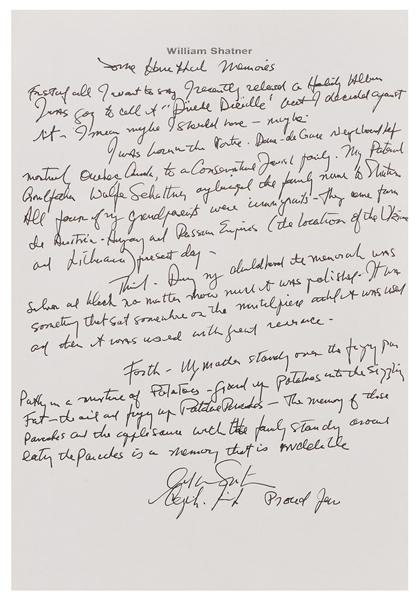 William Shatner
Some Hanukkah Memories
First of all I want to say I recently released a Holiday Album
I was going to call it "Dreidel Dreidle" but I decided against
it - I mean maybe I should have - maybe
I was born in the Notre-Dame-de-Grace Neighborhood of
Montreal Quebec Canada, to a Conservative Jewish family. My Paternal
Grandfather Wolfe Schattner anglicized the family name to Shatner
All four of my grandparents were immigrants - They came from
the Austria-Hungary and Russian Empires (the location of the Ukraine
and Lithuania) present day -
Third - During my childhood the menorah was
silver and black no matter how much it was polished. It was
something that sat somewhere on the mantelpiece until it was used
and then it was used with great reverence -
Forth - My mother standing over the frying pan
Putting in a mixture of Potatoes - ground up Potatoes into the sizzling
Fat - the oil and frying up Potatoe Pancakes - The memory of those
Pancakes and the applesauce with the family standing around
eating the Pancakes is a memory that is indelible
Proud Jew